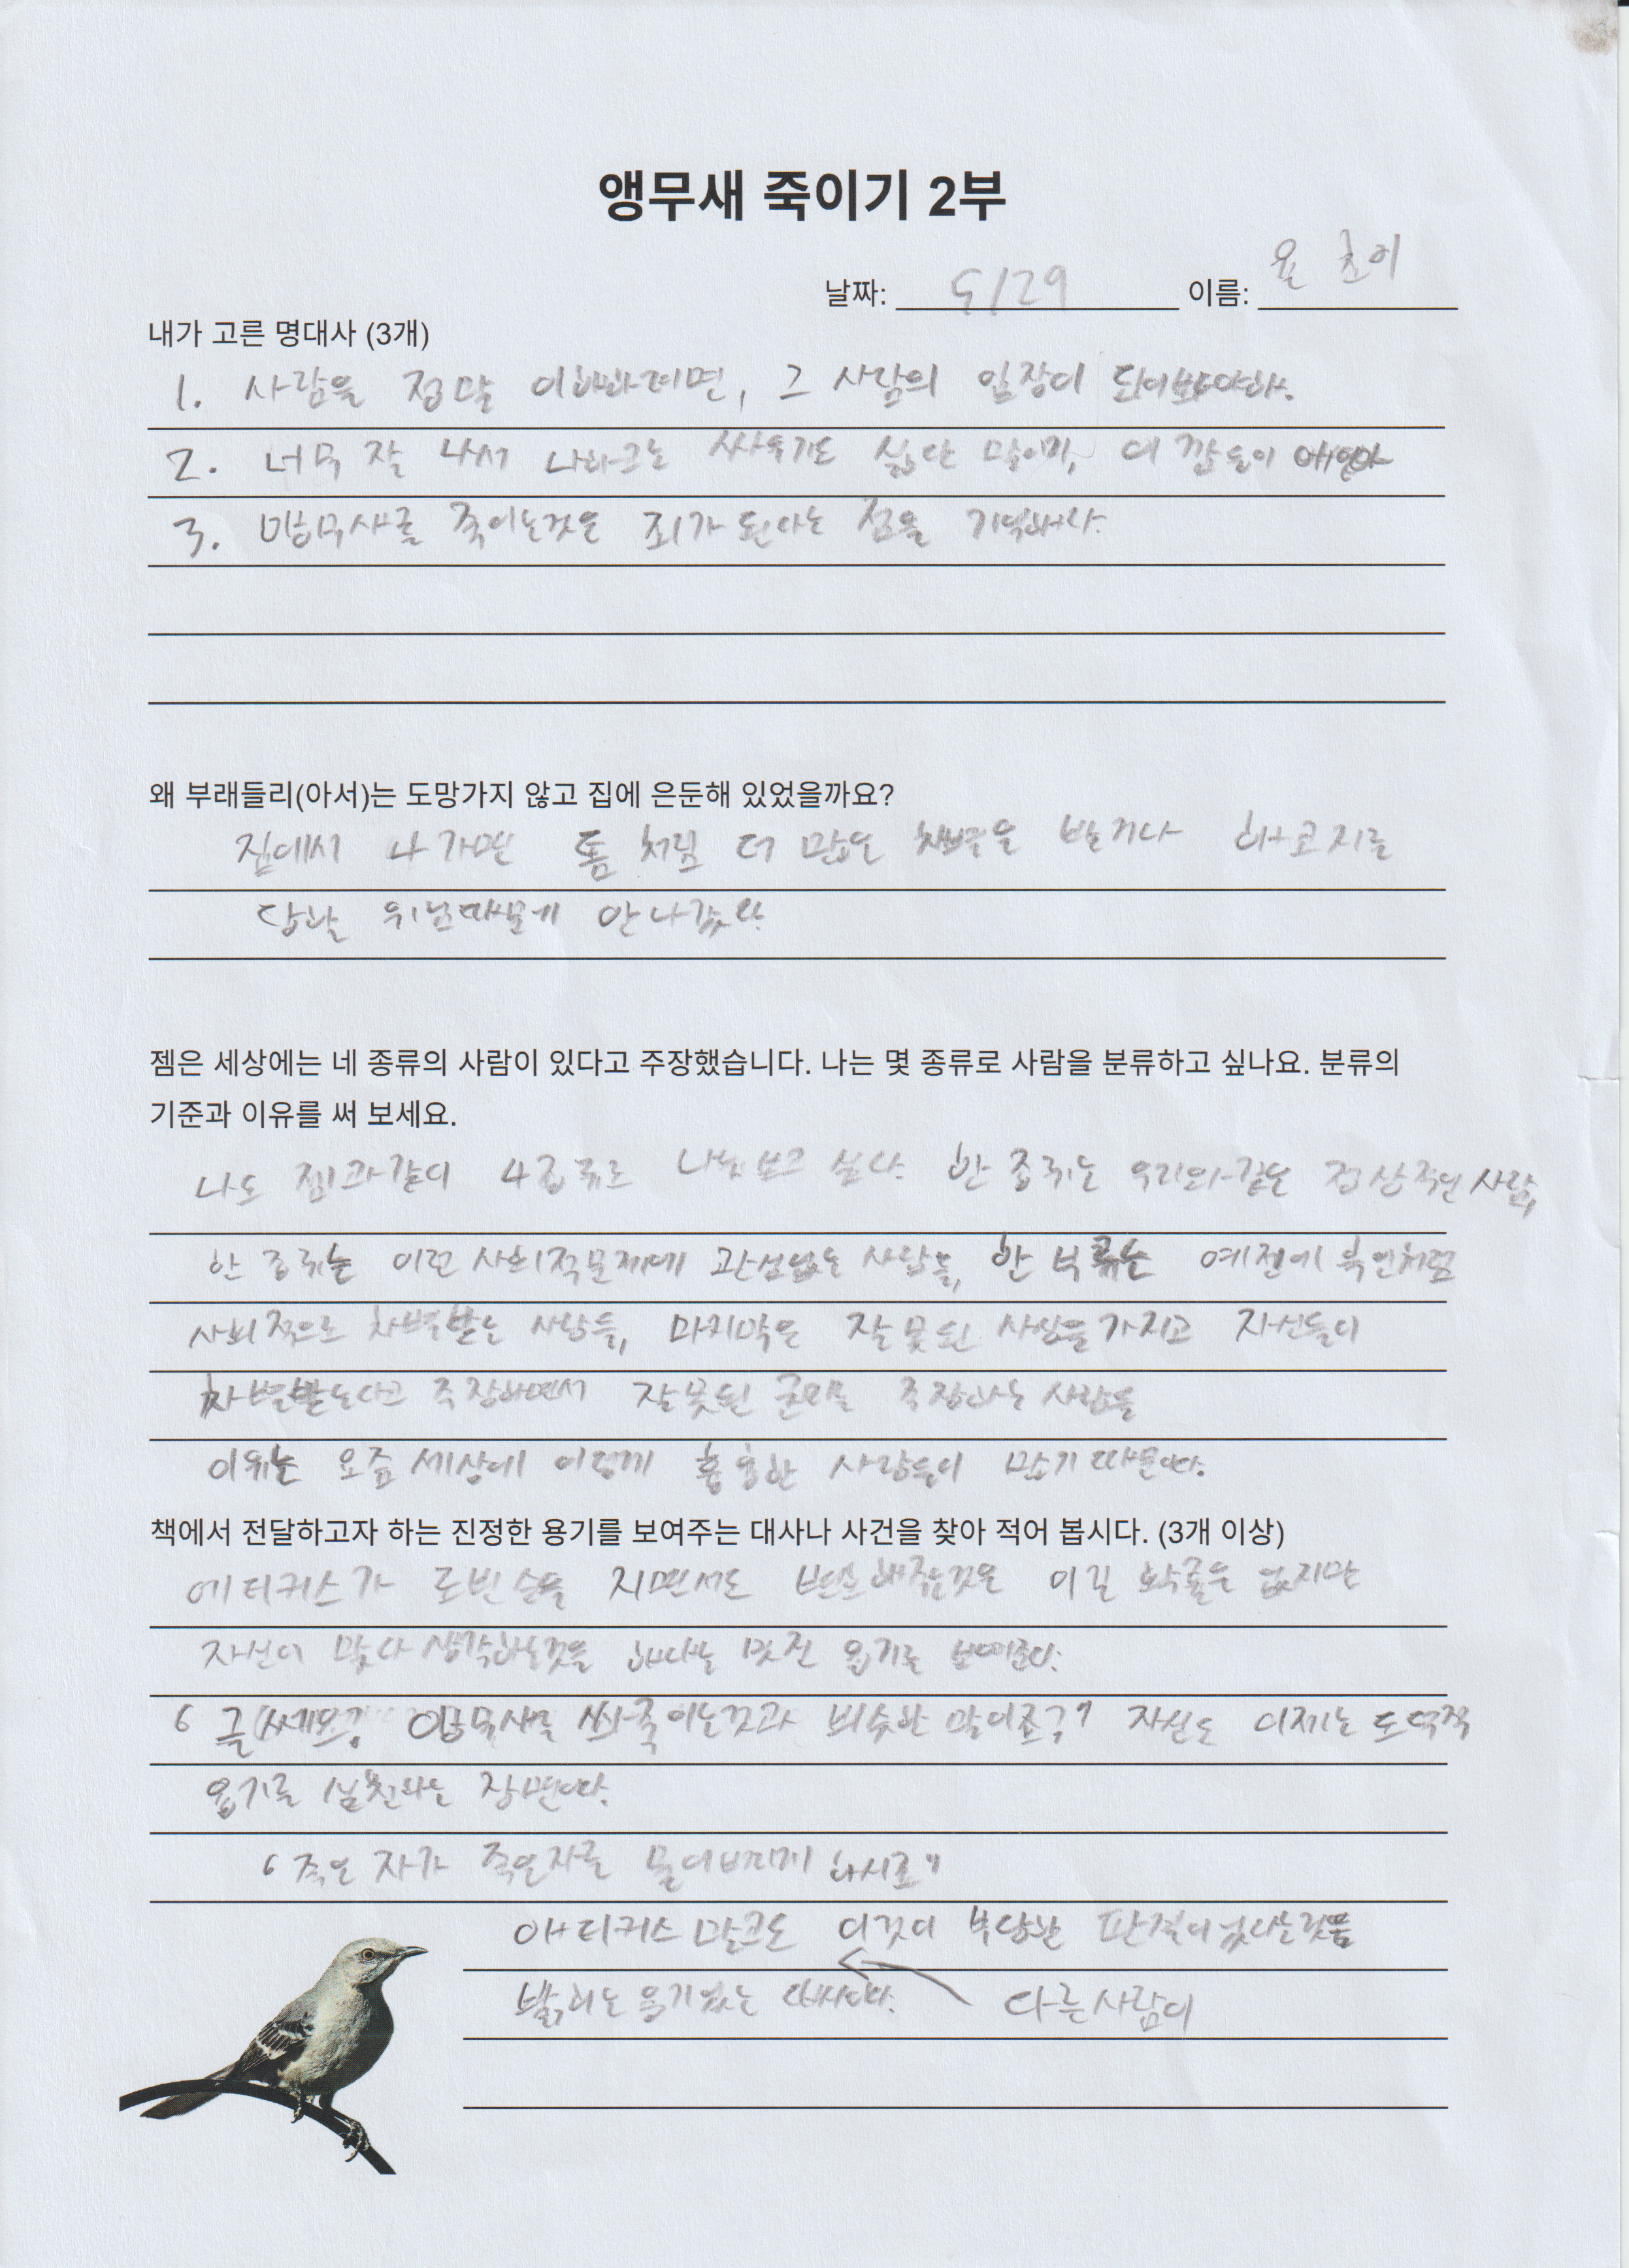 앵무새 죽이기 2부
날짜: 5/29 이름:
내가 고른 명대사 (3개)
1. 사람을 정말 이해하려면, 그 사람의 입장이 되어봐야해.
2. 너무 잘 나서 나하고는 싸우기도 싫단 말이지, 이 깜둥이 애인아
3. 앵무새를 죽이는것은 죄가 된다는 점을 기억해라.
왜 부래들리(아서)는 도망가지 않고 집에 은둔해 있었을까요?
집에서 나가면 톰 처럼 더 많은 차별을 받거나 해코지를
당할 위험때문에 안 나갔다.
젬은 세상에는 네 종류의 사람이 있다고 주장했습니다. 나는 몇 종류로 사람을 분류하고 싶나요. 분류의
기준과 이유를 써 보세요.
나도 젬과같이 4종류로 나눠보고 싶다. 한 종류는 우리와 같은 정상적인 사람,
한 종류는 이런 사회적문제에 관심없는 사람들, 한 부류는 예전에 흑인처럼
사회적으로 차별받는 사람들, 마지막은 잘못된 사상을 가지고 자신들이
차별받는다고 주장하면서 잘못된 주장하는 사람들
이유는 요즘 세상에 이렇게 흉흉한 사람들이 많기 때문이다.
책에서 전달하고자 하는 진정한 용기를 보여주는 대사나 사건을 찾아 적어 봅시다. (3개 이상)
에티커스가 로빈슨을 지면서도 변호해주는것은 이길 확률은 없지만
자신이 맞다 생각하는것을 해내는 멋진 용기를 보여준다.
글쎄요? 앵무새를 쏴죽이는것과 비슷한 말이죠?" 자신도 이제는 도덕적
용기를 실천하는 장면이다.
"죽은 자가 죽은자를 묻어버리게 하시죠"
애티커스 말고도 이것이 부당한 판결이었다는것을
밝히는 용기있는 대사이다. 다른사람이